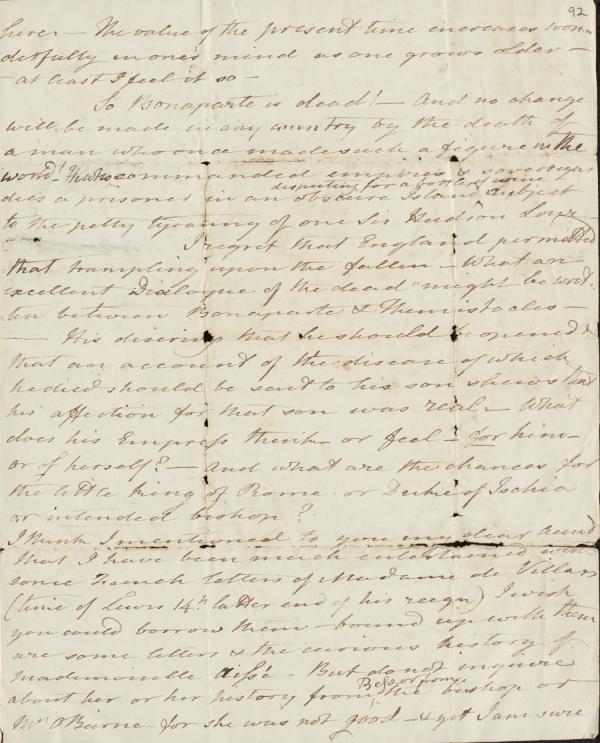 92
here – The value of the present time increases won
derfully in one's mind as one grows older –
– at least I feel it so –
So Bonaparte is dead! – And no change
will be made in any country by the death of
a man who once made such a figure in the
world! He who commanded empires & sovereigns
dies a prisoner in an obscure Island disputing for a bottle of wine subject
to the petty tyranny of one Sir Hudson Lowe –
I regret that England permitted
that trampling upon the fallen – What an
excellent Dialogue of the dead" might be writ-
ten between Bonaparte & Themistocles –
– His desiring that he should be opened &
that an account of the disease of which
he died should be sent to his son shews that
his affection for that son was real – What
does his Empress think – or feel – for him –
or of herself? – and what are the chances for
the little king of Rome or Duke of Ischia
or intended bishop?
I think I mentioned to you my dear Aunt
that I have been much entertained with
some French letters of Madame de Villars
(time of Lewis 14th latter end of his reign) I wish
you could borrow them – bound up with them
are some letters & the curious history of
mademoiselle Aissé – But do not inquire
about her or her history from Bess or Sony the bishop or
Mrs O'Beirne – for she was not good – & yet I am sure